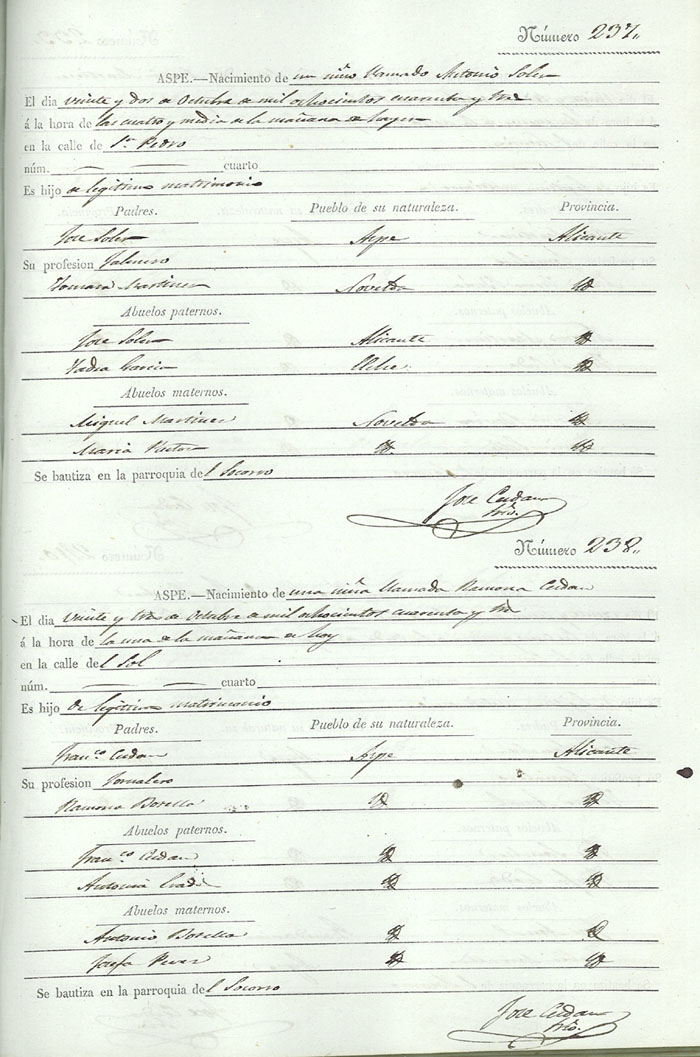 Número 237,,
ASPE.—Nacimiento de un niño llamado Antonio Soler
El dia veinte y dos de Octubre de mil ochocientos cuarenta y tres
á la hora de las cuatro y media de la mañana de hoy
en la calle de Sn. Pedro
núm. cuarto
Es hijo de legítimo matrimonio
Padres. Pueblo de su naturaleza. Provincia.
Jose Soler Aspe Alicante
Su profesion
Tomasa Martinez Novelda Id
Abuelos paternos.
Jose Soler Alicante Id
Garcia Elche Id
Abuelos maternos.
Miguel Martinez Novelda Id
Maria Id Id
Se bautiza en la parroquia del Socorro
Jose Cerdan
Srio.
Número 238,,
ASPE.—Nacimiento de una niña llamada Ramona Cerdan
El dia veinte y tres de Octubre de mil ochocientos cuarenta y tres
á la hora de la una de la mañana de hoy
en la calle del Sol
núm. cuarto
Es hijo de legítimo matrimonio
Padres. Pueblo de su naturaleza. Provincia.
Franco. Cerdan Aspe Alicante
Su profesion Jornalero
Ramona Botella Id Id
Abuelos paternos.
Franco. Cerdan Id Id
Antonia Id Id
Abuelos maternos.
Antonio Botella Id Id
Josefa Id Id
Se bautiza en la parroquia del Socorro
Jose Cerdan
Srio.